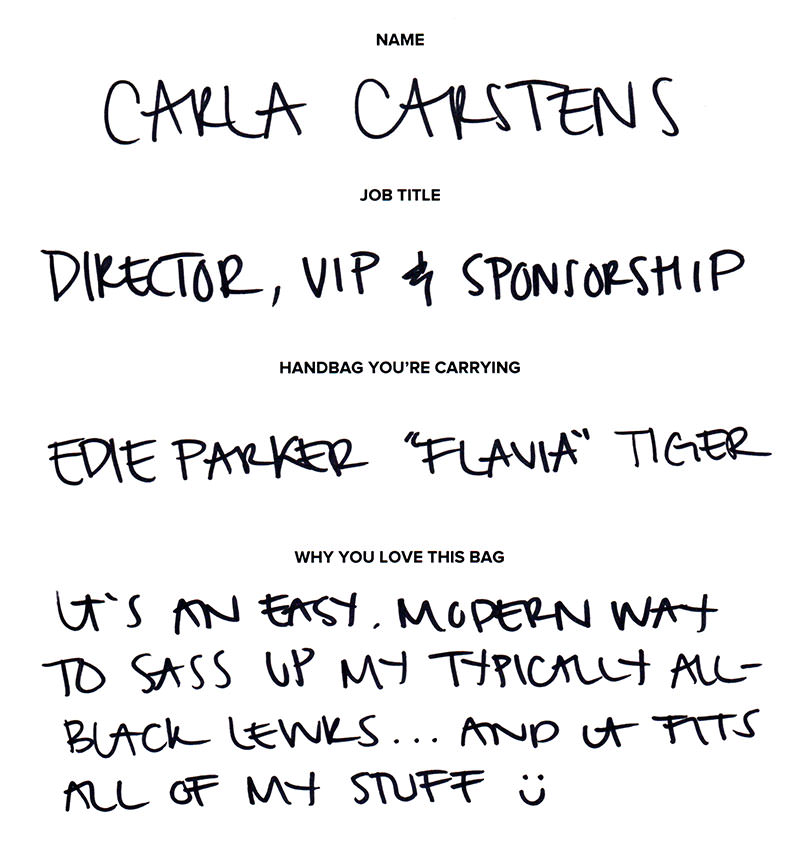 NAME
CARLA CARSTENS
JOB TITLE
DIRECTOR, VIP & SPONSORSHIP
HANDBAG YOU'RE CARRYING
EDIE PARKER "FLAVIA" TIGER
WHY YOU LOVE THIS BAG
IT'S AN EASY, MODERN WAY
TO SASS UP MY TYPICALLY ALL-
BLACK LEWKS... AND IT FITS
ALL OF MY STUFF :)